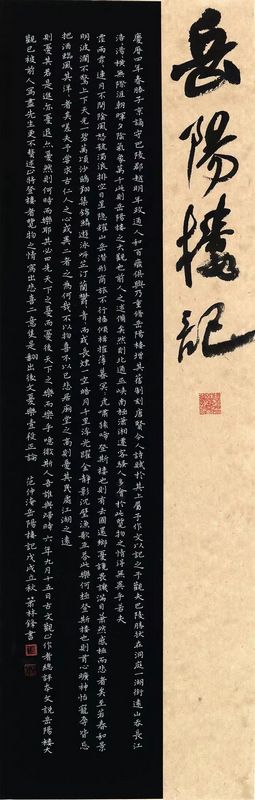 岳陽樓記
慶曆四年春滕子京謫守巴陵郡越明年政通人和百廢俱興乃重修岳陽樓增其舊制刻唐賢今人詩賦於其上屬予作文以記之予觀夫巴陵勝狀在洞庭一湖銜遠山吞長江
浩浩湯湯橫無際涯朝暉夕陰氣象萬千此則岳陽樓之大觀也前人之述備矣然則北通巫峽南極瀟湘遷客騷人多會於此覽物之情得無異乎若夫
霪雨霏霏連月不開陰風怒號濁浪排空日星隱耀山岳潛形商旅不行檣傾楫摧薄暮冥冥虎嘯猿啼登斯樓也則有去國還鄉憂讒畏譏滿目蕭然感極而悲者矣至若春和景
明波瀾不驚上下天光一碧萬頃沙鷗翔集錦鱗遊泳岸芷汀蘭鬱鬱青青而或長煙一空皓月千里浮光躍金靜影沉璧漁歌互答此樂何極登斯樓也則有心曠神怡寵辱皆忘
把酒臨風其洋洋者矣嗟夫予嘗求古仁人之心或異二者之為何哉不以物喜不以己悲居廟堂之高則憂其民處江湖之遠
則憂其君是進亦憂退亦憂然則何時而樂耶其必曰先天下之憂而憂後天下之樂而樂乎噫微斯人吾誰與歸時六年九月十五日古文觀止作者總評本文說岳陽樓大
觀已被前人寫盡先生更不贅述止將登樓者覽物之情寫出悲喜二意只是翻出後文憂樂一段正論 范仲淹岳陽樓記戊戌立秋葉林鋒書